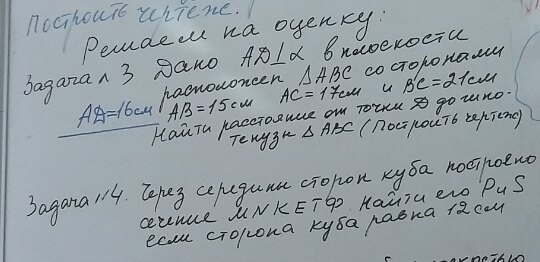 Построить чертеж.
Решаем на оценку:
Задача №3 Дано AD⊥α в плоскости
расположен ΔABC со сторонами
AD=16см AB=15см AC=17см и BC=21см
Найти расстояние от точки D до гипо-
тенузы ΔABC (Построить чертеж)
Задача №4. Через середины сторон куба построено
сечение MNKETФ. Найти его P и S
если сторона куба равна 12см